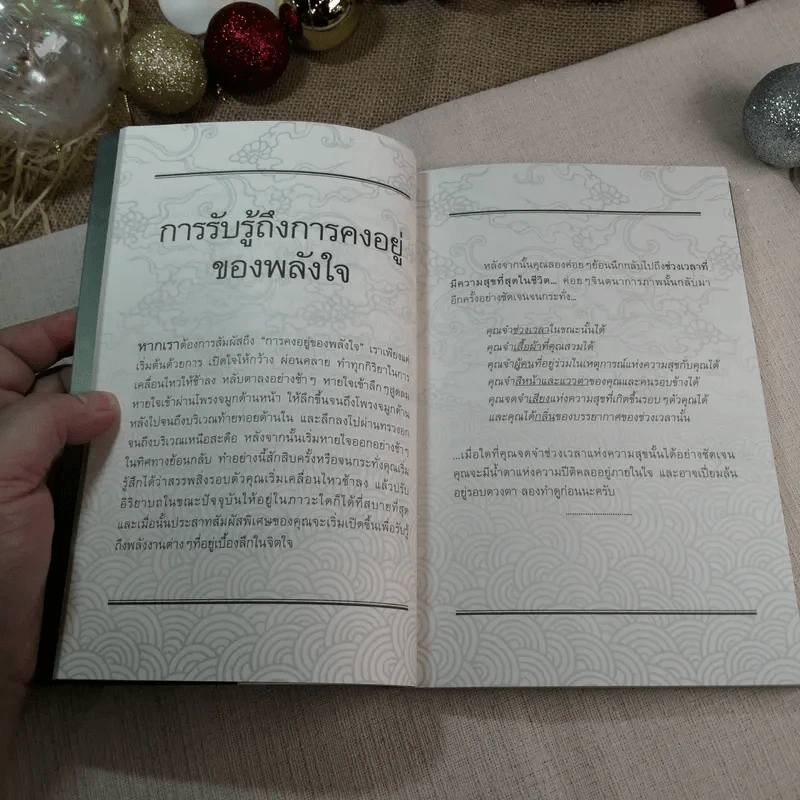 การรับรู้ถึงการคงอยู่
ของพลังใจ
หากเราต้องการสัมผัสถึง "การคงอยู่ของพลังใจ" เราเพียงแค่
เริ่มต้นด้วยการ เปิดใจให้กว้าง ผ่อนคลาย ทำทุกกิริยาในการ
เคลื่อนไหวให้ช้าลง หลับตาลงอย่างช้าๆ หายใจเข้าลึกๆสูดลม
หายใจเข้าผ่านโพรงจมูกด้านหน้า ให้ลึกขึ้นจนถึงโพรงจมูกด้าน
หลังไปจนถึงบริเวณท้ายทอยด้านใน และลึกลงไปผ่านทรวงอก
จนถึงบริเวณเหนือสะดือ หลังจากนั้นเริ่มหายใจออกอย่างช้าๆ
ในทิศทางย้อนกลับ ทำอย่างนี้สักสิบครั้งหรือจนกระทั่งคุณเริ่ม
รู้สึกได้ว่าสรรพสิ่งรอบตัวคุณเริ่มเคลื่อนไหวช้าลง แล้วปรับ
อิริยาบถในขณะปัจจุบันให้อยู่ในภาวะใดก็ได้ที่สบายที่สุด
และเมื่อนั้นประสาทสัมผัสพิเศษของคุณจะเริ่มเปิดขึ้นเพื่อรับรู้
ถึงพลังงานต่างๆที่อยู่เบื้องลึกในจิตใจ
หลังจากนั้นคุณลองค่อยๆย้อนนึกกลับไปถึงช่วงเวลาที่
มีความสุขที่สุดในชีวิต... ค่อยๆจินตนาการภาพนั้นกลับมา
อีกครั้งอย่างชัดเจนจนกระทั่ง...
คุณจำช่วงเวลาในขณะนั้นได้
คุณจำเสื้อผ้าที่คุณสวมได้
คุณจำผู้คนที่อยู่ร่วมในเหตุการณ์แห่งความสุขกับคุณได้
คุณจำสีหน้าและแววตาของคุณและคนรอบข้างได้
คุณจดจำเสียงแห่งความสุขที่เกิดขึ้นรอบๆตัวคุณได้
และคุณได้กลิ่นของบรรยากาศของช่วงเวลานั้น
...เมื่อใดที่คุณจดจำช่วงเวลาแห่งความสุขนั้นได้อย่างชัดเจน
คุณจะมีน้ำตาแห่งความปิติคลออยู่ภายในใจ และอาจเปี่ยมล้น
อยู่รอบดวงตา ลองทำดูก่อนนะครับ